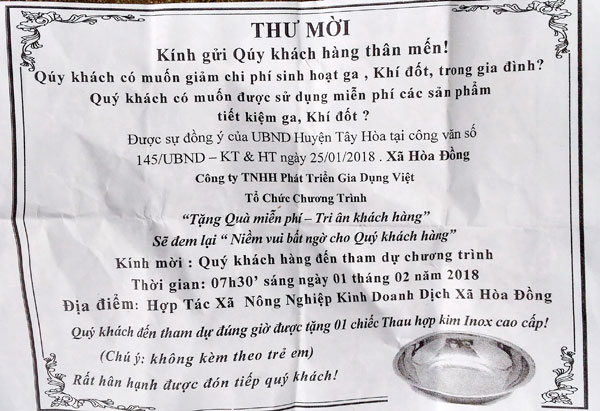 THƯ MỜI
Kính gửi Qúy khách hàng thân mến!
Qúy khách có muốn giảm chi phí sinh hoạt ga , Khí đốt, trong gia đình?
Quý khách có muốn được sử dụng miễn phí các sản phẩm
tiết kiệm ga, Khí đốt ?
Được sự đồng ý của UBND Huyện Tây Hòa tại công văn số
145/UBND – KT & HT ngày 25/01/2018 . Xã Hòa Đồng
Công ty TNHH Phát Triển Gia Dụng Việt
Tổ Chức Chương Trình
“Tặng Quà miễn phí – Tri ân khách hàng”
Sẽ đem lại “ Niềm vui bất ngờ cho Quý khách hàng”
Kính mời : Quý khách hàng đến tham dự chương trình
Thời gian: 07h30’ sáng ngày 01 tháng 02 năm 2018
Địa điểm: Hợp Tác Xã Nông Nghiệp Kinh Doanh Dịch Xã Hòa Đồng
Quý khách đến tham dự đúng giờ được tặng 01 chiếc Thau hợp kim Inox cao cấp!
(Chú ý: không kèm theo trẻ em)
Rất hân hạnh được đón tiếp quý khách!